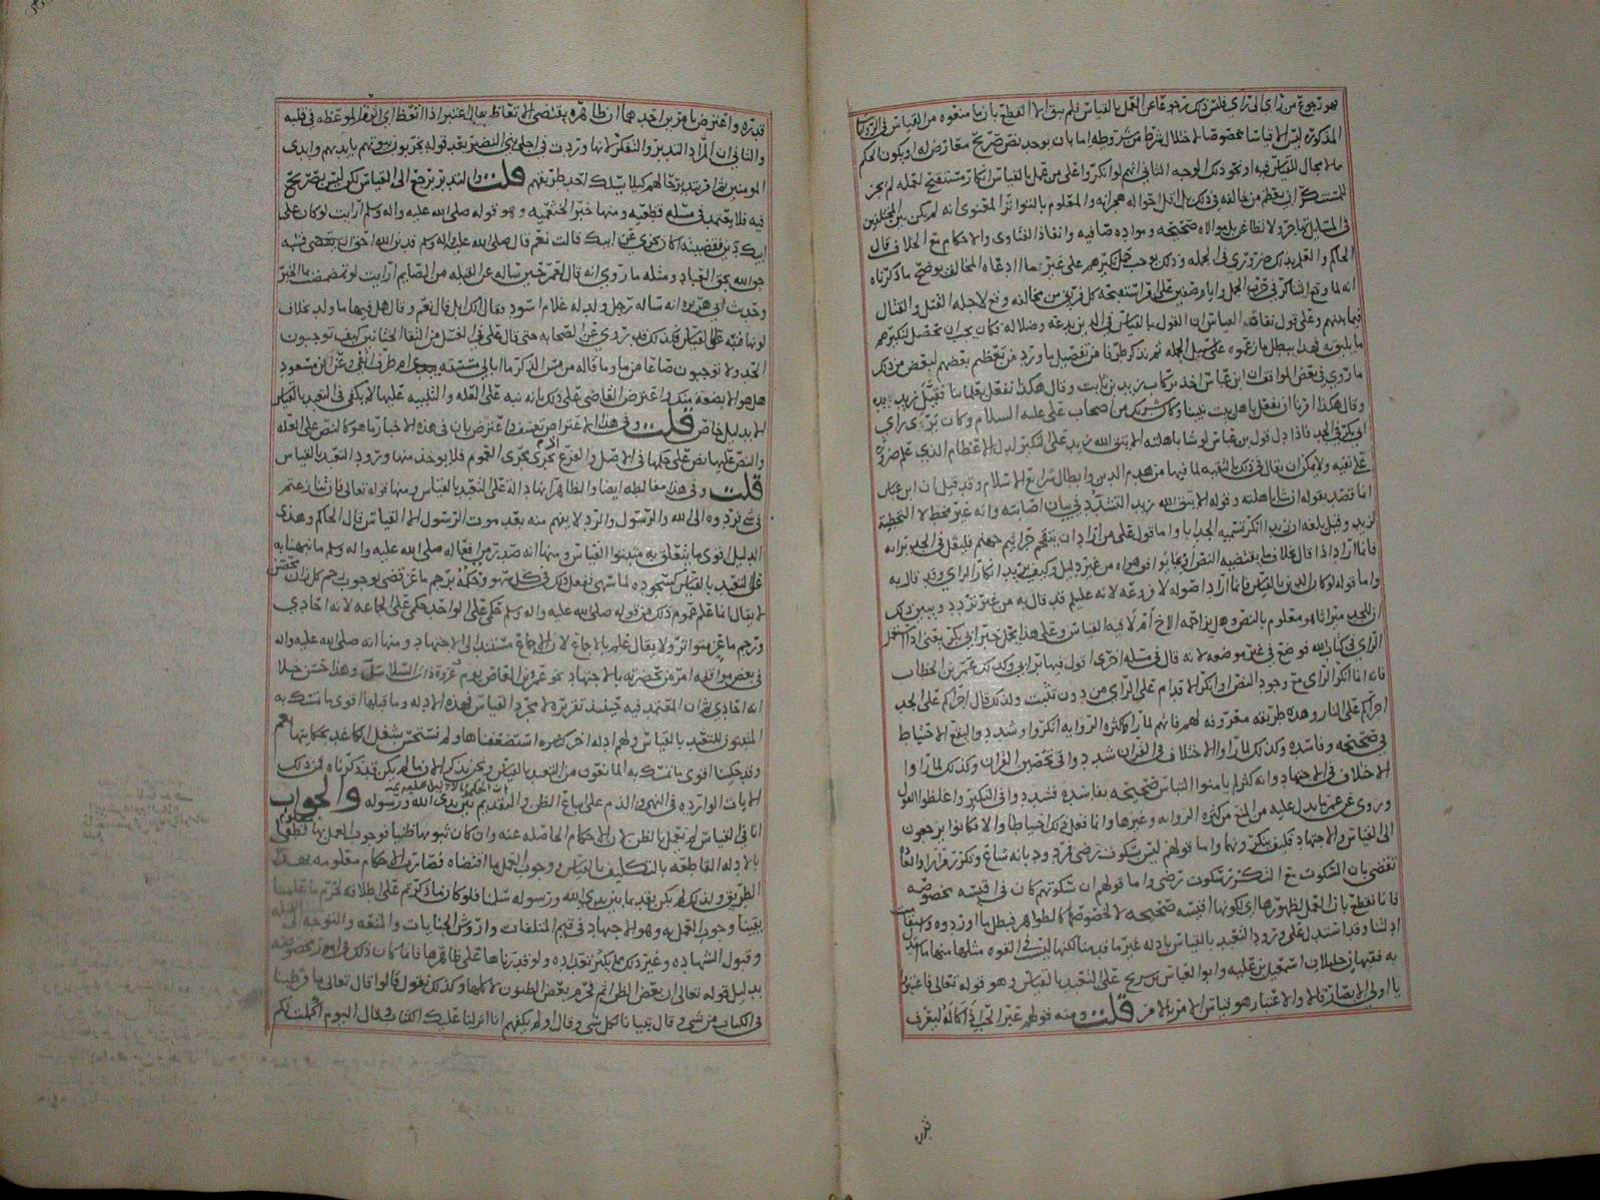 فهو رجوع من رأي الى رأي فليس ذلك رجوعا عن العمل بالقياس فلم يبق الا القطع بأن ما منعوه من القياس في الروايات
المذكورة ليس الا قياسا مخصوصا لاخلال شرط من شروطه اما بان يوجد نص صريح معارض له او يكون الحكم
مما لا مجال للقياس فيه او نحو ذلك الوجه الثاني انهم لو انكروا على من عمل بالقياس انكار مستقبح لعمله لم يجز
في المسايل مهاجرة ولا تقاطع بل موالاة صحيحة وموادة صافية وانفاذ الفتاوى والاحكام مع الخلاف قال
الحاكم والعلم بذلك ضروري في الجملة وذلك يوجب حمل نكيرهم على غير ما ادعاه المخالف يوضح ما ذكرناه
فيما بينهم وعلى قول نفاة القياس ان القول بالقياس في الدين بدعة وضلالة فكان يجب ان يحصل نكيرهم
ما يليق به فهذا يبطل ما زعموه على سبيل الجملة ثم نذكر طرفا من تفصيل ما ورد من تعظيم بعضهم لبعض من ذلك
ما روي في بعض المواقف ان ابن عباس اخذ بركاب زيد بن ثابت وقال هكذا نفعل بعلمائنا فقبل زيد يده
وقال هكذا امرنا ان نفعل باهل بيت نبينا وكان شريك من اصحاب علي عليه السلام وكان يرى رأي
ابي بكر في الجد فاذا دل قول ابن عباس لو شا باهلته الا يتق الله زيد على النكير لدل الاعظام الذي علم ضرورة
على نفيه ولا يمكن ان يقال في ذلك بالتقية لما فيها من هدم الدين وابطال شرايع الاسلام وقد قيل ان ابن عباس
انما قصد بقوله ان شا باهلته وقوله الا يتق الله زيد التشديد في بيان اصابته وانه غير مخطئ لا التخطية
لزيد وقيل بلغه ان زيدا انكر تسميه الجد ابا واما قول علي من اراد ان يتقحم جراثيم جهنم فليقل في الجد برأيه
فانما اراد اذا قال خلاف ما يقتضيه النص او تحابوا فهواه من غير دليل وكيف يريد انكار الراي وقد قال به
واما قوله لو كان الدين بالقياس فانما اراد اصوله لا فروعه لانه عليلم قد قال به من غير تردد ويبين ذلك
الراي في كتاب الله فوضع في غير موضعه لانه قال في مسيله اخرى اقول فيها برايي وكذلك عمر بن الخطاب
فانه انما انكر الراي مع وجود النص او انكر الاقدام على الراي من دون تثبت ولذلك قال اجراكم على الجد
اجراكم على النار وهذه طريقه معروفه لهم فانهم لما راوا كثره الروايه انكروا وشددوا ليقع الاحتياط
في صحيحه وفاسده وكذلك لما راوا الاختلاف في القران شددوا في تحصين القران وكذلك لما راوا
الاختلاف في الاجتهاد وانه كثر لم يامنوا التباس صحيحه بفاسده فشددوا في النكير واغلظوا القول
وروي عن عمر ما يدل عليه من المنع من كثره الروايه وغيرها وانما فعل ذلك احتياطا والا فكانوا يرجعون
الى القياس والاجتهاد فكيف ينكرونهما واما قولهم ليس سكوت رضى فمردود بانه شاع وتكرر
تقضي بان السكوت مع التكرر سكوت رضى واما قولهم ان سكوتهم كان في اقيسه مخصوصه
فانا نقطع بان العمل لظهورها اي لكونها اقيسه صحيحه لا لخصوصها كالظواهر فبطل ما اوردوه
ادلتنا وقد استدل على ورود التعبد بالقياس بادله غير ما قدمنا لكنها ليست في القوه مثلها منها
به فقيهان جليلان اسمعيل بن عليه وابو العباس بن سريج على التعبد بالقياس وهو قوله تعالى فاعتبروا
يا اولي الابصار قالا والاعتبار هو قياس الامر بالامر قلت ومنه قولهم
فنزده
قدره واعترض بامرين احدهما ان ظاهره يقتضي الاتعاظ يقال اعتبر اذا اتعظ اي اثر الموعظه في قلبه
والثاني ان المراد التدبر والتفكر لانها وردت في اجلا بني النضير بعد قوله يخربون بيوتهم بايديهم وايدي
المومنين اي قد تدبر حالهم كيلا يسلك احد طريقهم قلت والتدبر يرجع الى القياس لكن ليس بصريح
فيه فلا يعتمد في مسله قطعيه ومنها خبر الخثعميه وهو قوله صلى الله عليه واله وسلم ارايت لو كان على
ابيك دين فقضيته اكان يجزي عن ابيك قالت نعم قال صلى الله عليه واله وسلم فدين الله احق ان يقضى
حق الله بحق العباد ومثله ما روي انه قال لعمر حين ساله عن القبله من الصايم ارايت لو تمضمضت بما الخبر
وحديث ابي هريره انه ساله رجل ولد له غلام اسود فقال الك ابل قال نعم وقال هل فيها
لونها فنبه على القياس قلت كذلك قد روي عن الصحابه حتى قال علي في الغسل من التقا الختانين كيف توجبون
الحد ولا توجبون صاعا من ما وما قاله من مس الذكر ما ابالي مسسته ام طرف انفي وعن ابن مسعود
هل هو الا بضعة منك واعترض القاضي على ذلك بانه نبه على العله والتنبيه عليها لا يكفي في التعبد بالقياس
الا بدليل خاص قلت وفي هذا الاعتراض تعسف واعترض بان في هذه الاخبار ما هو كالنص على العله
والنص عليها نص على حكمها في الاصل والفرع تجرى مجرى العموم فلا يوخذ منها ورود التعبد بالقياس
قلت وفي هذا مغالطه ايضا والظاهر انها دالة على التعبد بالقياس ومنها قوله تعالى فان تنازعتم
في شي فردوه الى الله والرسول والرد لا يفهم منه بعد موت الرسول الا القياس قال الحاكم وهذي
الدليل اقوى ما يتعلق به مثبتوا القياس ومنها انه صدر من افعاله صلى الله عليه واله وسلم ما نبهنا به
على التعبد بالقياس كسجوده لما سهى ففعل ذلك في كل سهو وحكمه برجم ماعز قضى بوجوب رجم كل زان محصن
لا يقال انما علم عموم ذلك من قوله صلى الله عليه واله وسلم حكمي على الواحد حكمي على الجماعه لانه احادي
ورجم ماعز متواتر ولا يقال علم بالاجماع لان الاجماع مستند الى الاجتهاد ومنها انه صلى الله عليه واله
في بعض مواقفه امر من بحضرته بالاجتهاد نحو عمرو بن العاص يوم غزوه ذات السلاسل وهذا حسن خلا
انه احادي ثم ان المعتمد فيه حينئذ تقريره لا مجرد القياس فهذه الادله وما قبلها اقوى ما تمسك به
المثبتون للتعبد بالقياس ولهم ادله اخر كثيره استضعفناها ولم نستحسن شغل الكاغد بحكايتها نعم
وقد حكينا اقوى ما تمسك به المانعون من التعبد بالقياس ونحن نذكر الان ما لم يكن قد ذكرناه فمن ذلك
الايات الوارده في النهي والذم على اتباع الظن والتقديم بين يدي الله ورسوله والجواب
انا في القياس لم نعمل بالظن لان الاحكام الحاصله عنه وان كان ثبوتها ظنيا فوجوب العمل بها قطعي
بالادله القاطعه بالتكليف بالقياس ووجوب العمل بما اقتضاه فصارت الاحكام معلومه بهذا
الطريق ولذلك لم يكن تقدما بين يدي الله ورسوله سلمنا فلو كان ما ذكرتم على اطلاقه لحرم ما علمنا
يقينا وجوب العمل به وهو الاجتهاد في قيم المتلفات واروش الجنايات والمتعه والتوجه الى القبله
وقبول الشهاده وغير ذلك مما يكثر تعداده ولو قدرناها على ظاهرها فانما كان ذلك في امور مخصوصه
بدليل قوله تعالى ان بعض الظن اثم فحرم بعض الظنون لا كلها وكذلك نقول قالوا قال تعالى ما فرطنا
في الكتاب من شي وقال تبيانا لكل شي وقال اولم يكفهم انا انزلنا عليك الكتاب وقال اليوم اكملت لكم